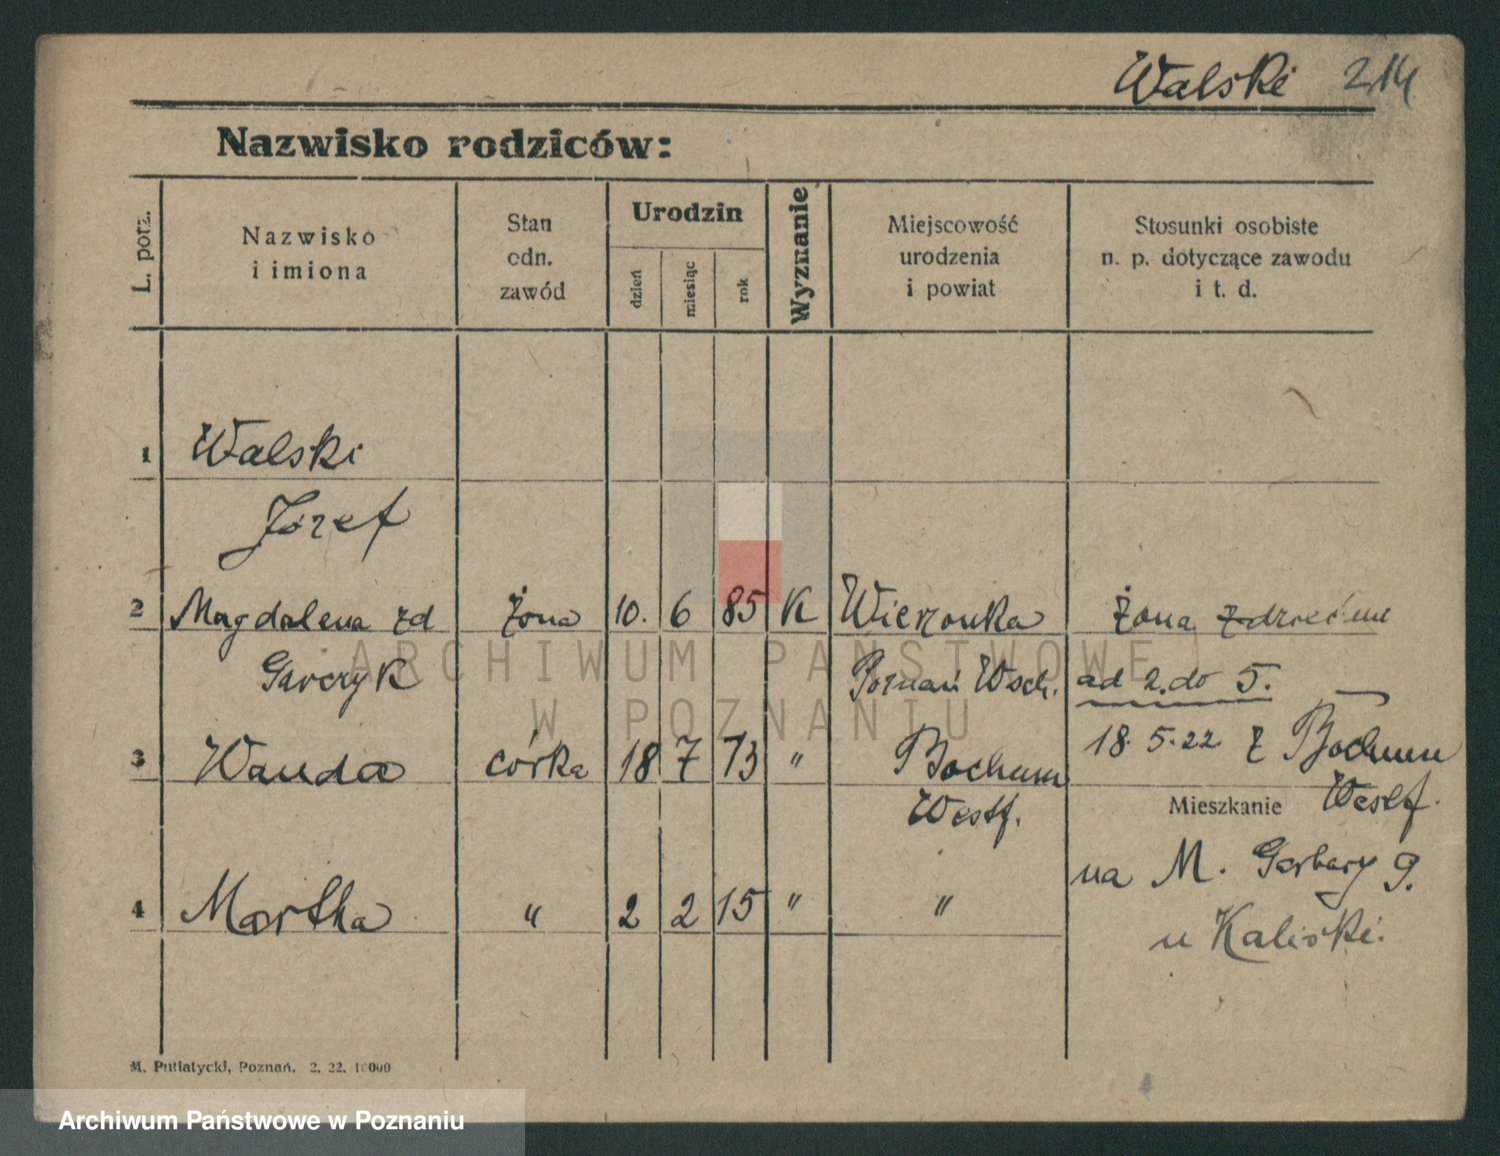 Walski 214
Nazwisko rodziców:
L. porz.
Nazwisko
i imiona
Stan
odn.
zawód
Urodzin
dzień
miesiąc
rok
Wyznanie
Miejscowość
urodzenia
i powiat
Stosunki osobiste
n. p. dotyczące zawodu
i t. d.
1 Walski
Józef
2 Magdalena zd żona 10. 6 85 K Wierzonka żona z dziećmi
Garczyk Poznań Wsch. od 2. do 5.
3 Wanda córka 18 7 13 " Bochum 18. 5. 22 z Bochum
Westf. Westf.
Mieszkanie
na M. Garbary 9.
4 Martha " 2 2 15 " "
u Kaliski.
M. Putiatycki, Poznań. 2. 22. 10000
ARCHIWUM PAŃSTWOWE
W POZNANIU
Archiwum Państwowe w Poznaniu